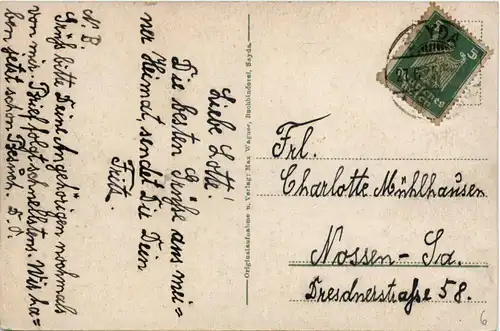 Liebe Lotte!
Die besten Grüße aus mei=
ner Heimat, sendet Die Dein
Fritz.
N.B.
Grüß bitte Deine Angehörigen nochmals
von mir. Brief folgt schnellstens. Wir ha=
ben jetzt schon Besuch. D.O.
Originalaufnahme u. Verlag: Max Wagner, Buchbinderei, Sayda.
YDA
5
Frl.
Charlotte Mühlhausen
Nossen-Sa.
Dresdnerstraße 58.
6